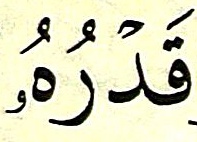 قَدْرُهُۥ